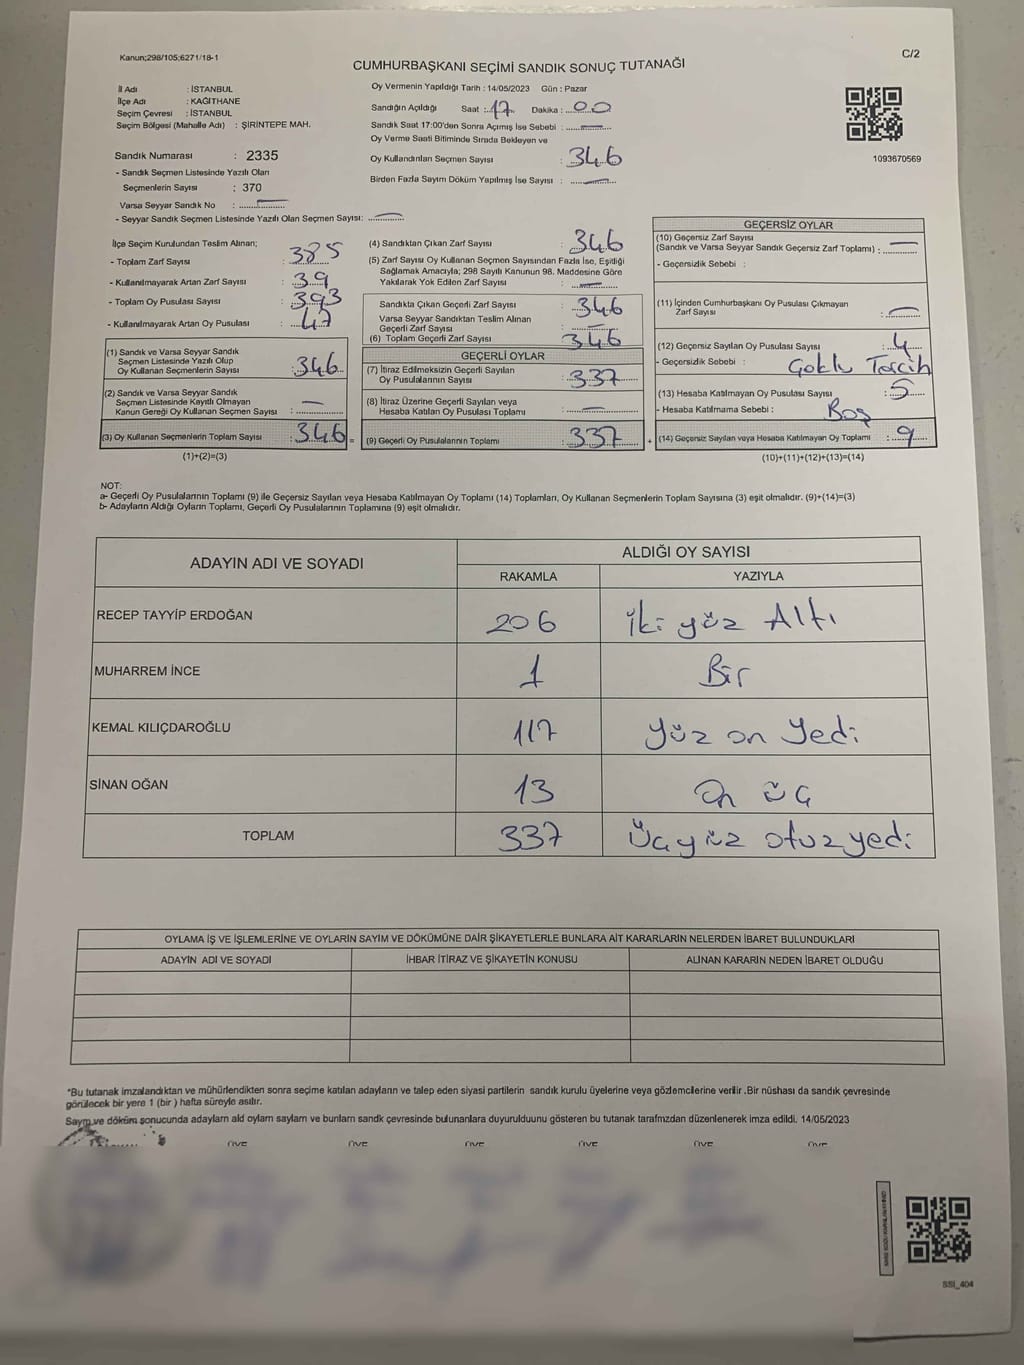 Kanun;298/105;6271/18-1
C/2
CUMHURBAŞKANI SEÇİMİ SANDIK SONUÇ TUTANAĞI
İl Adı : İSTANBUL
İlçe Adı : KAĞITHANE
Seçim Çevresi : İSTANBUL
Seçim Bölgesi (Mahalle Adı) : ŞİRİNTEPE MAH.
Sandık Numarası : 2335
- Sandık Seçmen Listesinde Yazılı Olan
Seçmenlerin Sayısı : 370
Varsa Seyyar Sandık No : —
- Seyyar Sandık Listesinde Yazılı Olan Seçmen Sayısı: —
Oy Vermenin Yapıldığı Tarih : 14/05/2023 Gün : Pazar
Sandığın Açıldığı Saat : 17 Dakika : 00
Sandık Saat 17:00'den Sonra Açılmış İse Sebebi : —
Oy Verme Saati Bitiminde Sırada Bekleyen ve
Oy Kullandırılan Seçmen Sayısı : 346
Birden Fazla Sayım Döküm Yapılmış İse Sayısı : —
1093670569
İlçe Seçim Kurulundan Teslim Alınan;
- Toplam Zarf Sayısı : 385
- Kullanılmayarak Artan Zarf Sayısı : 39
- Toplam Oy Pusulası Sayısı : 393
- Kullanılmayarak Artan Oy Pusulası : 47
(1) Sandık ve Varsa Seyyar Sandık
Seçmen Listesinde Yazılı Olup
Oy Kullanan Seçmenlerin Sayısı : 346
(2) Sandık ve Varsa Seyyar Sandık
Seçmen Listesinde Kayıtlı Olmayan
Kanun Gereği Oy Kullanan Seçmen Sayısı : —
(3) Oy Kullanan Seçmenlerin Toplam Sayısı : 346 =
(1)+(2)=(3)
(4) Sandıktan Çıkan Zarf Sayısı : 346
(5) Zarf Sayısı Oy Kullanan Seçmen Sayısından Fazla İse, Eşitliği
Sağlamak Amacıyla; 298 Sayılı Kanunun 98. Maddesine Göre
Yakılarak Yok Edilen Zarf Sayısı : —
Sandıkta Çıkan Geçerli Zarf Sayısı : 346
Varsa Seyyar Sandıktan Teslim Alınan
Geçerli Zarf Sayısı : —
(6) Toplam Geçerli Zarf Sayısı : 346
GEÇERLİ OYLAR
(7) İtiraz Edilmeksizin Geçerli Sayılan
Oy Pusulalarının Sayısı : 337
(8) İtiraz Üzerine Geçerli Sayılan veya
Hesaba Katılan Oy Pusulası Toplamı : —
(9) Geçerli Oy Pusulalarının Toplamı : 337 +
GEÇERSİZ OYLAR
(10) Geçersiz Zarf Sayısı
(Sandık ve Varsa Seyyar Sandık Geçersiz Zarf Toplamı) : —
- Geçersizlik Sebebi :
(11) İçinden Cumhurbaşkanı Oy Pusulası Çıkmayan
Zarf Sayısı : —
(12) Geçersiz Sayılan Oy Pusulası Sayısı : 4
- Geçersizlik Sebebi : Çoklu Tercih
(13) Hesaba Katılmayan Oy Pusulası Sayısı : 5
- Hesaba Katılmama Sebebi : Boş
(14) Geçersiz Sayılan veya Hesaba Katılmayan Oy Toplamı : 9
(10)+(11)+(12)+(13)=(14)
NOT:
a- Geçerli Oy Pusulalarının Toplamı (9) ile Geçersiz Sayılan veya Hesaba Katılmayan Oy Toplamı (14) Toplamları, Oy Kullanan Seçmenlerin Toplam Sayısına (3) eşit olmalıdır. (9)+(14)=(3)
b- Adayların Aldığı Oyların Toplamı, Geçerli Oy Pusulalarının Toplamına (9) eşit olmalıdır.
ADAYIN ADI VE SOYADI
ALDIĞI OY SAYISI
RAKAMLA YAZIYLA
RECEP TAYYİP ERDOĞAN 206 İki yüz Altı
MUHARREM İNCE 1 Bir
KEMAL KILIÇDAROĞLU 117 Yüz on Yedi
SİNAN OĞAN 13 On üç
TOPLAM 337 Üçyüz otuzyedi
OYLAMA İŞ VE İŞLEMLERİNE VE OYLARIN SAYIM VE DÖKÜMÜNE DAİR ŞİKAYETLERLE BUNLARA AİT KARARLARIN NELERDEN İBARET BULUNDUKLARI
ADAYIN ADI VE SOYADI İHBAR İTİRAZ VE ŞİKAYETİN KONUSU ALINAN KARARIN NEDEN İBARET OLDUĞU
*Bu tutanak imzalandıktan ve mühürlendikten sonra seçime katılan adayların ve talep eden siyasi partilerin sandık kurulu üyelerine veya gözlemcilerine verilir .Bir nüshası da sandık çevresinde
görülecek bir yere 1 (bir ) hafta süreyle asılır.
Sayım ve döküm sonucunda adayların ald oylam saylam ve bunlarn sandk çevresinde bulunanlara duyurulduunu gösteren bu tutanak tarafmzdan düzenlenerek imza edildi. 14/05/2023
SSI_404